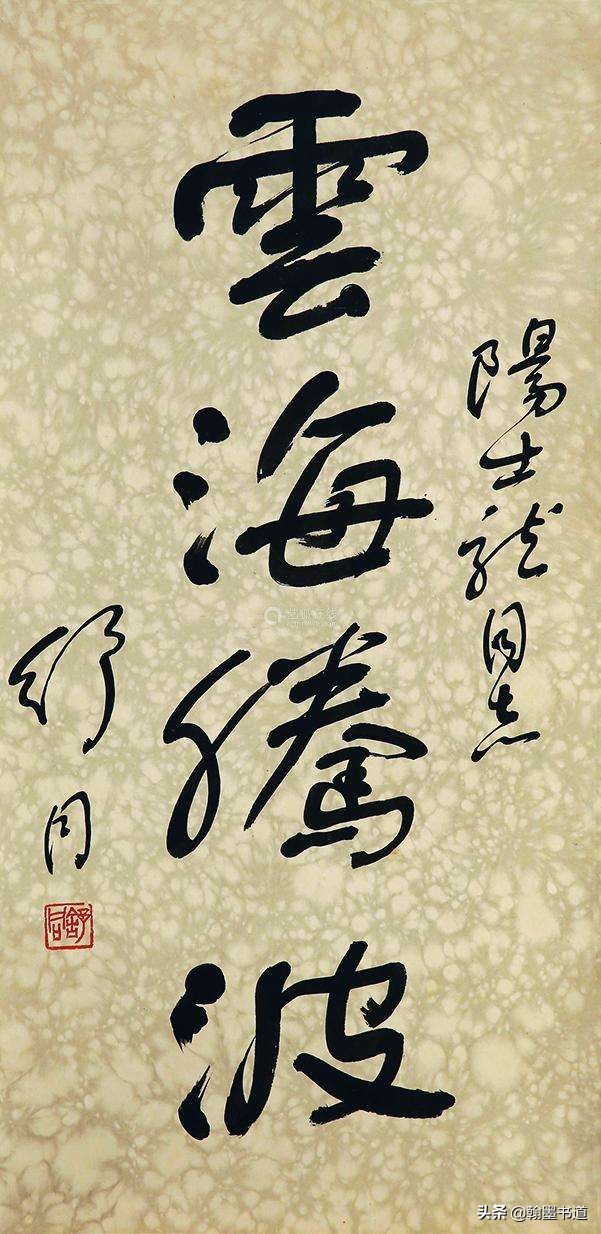 陽士龍同志
雲海騰波
舒同
舒同
头条 @翰墨书道